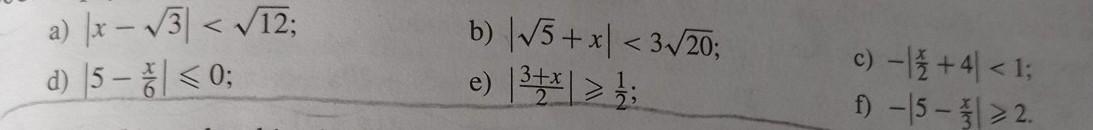 a) |x − √3| < √12;
b) |√5 + x| < 3√20;
c) −|x/2 + 4| < 1;
d) |5 − x/6| ⩽ 0;
e) |(3+x)/2| ⩾ 1/2;
f) −|5 − x/3| ⩾ 2.